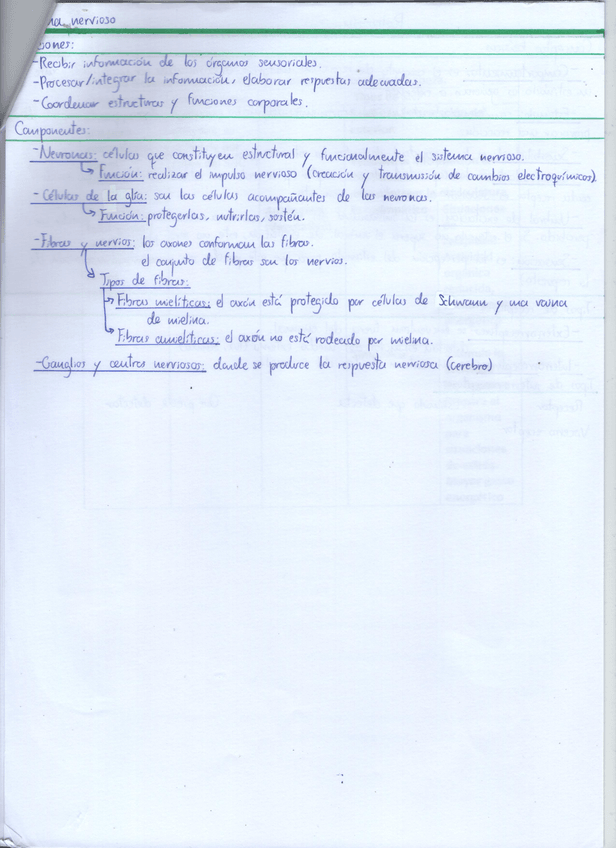 na nervioso
iones:
-Recibir información de los órganos sensoriales.
-Procesar/integrar la información, elaborar respuestas adecuadas.
-Coordenar estructuras y funciones corporales.
Componentes:
-Neuronas: células que constituyen estructural y funcionalmente el sistema nervioso.
Función: realizar el impulso nervioso (creación y transmisión de cambios electroquímicos).
-Células de la glía: son las células acompañantes de las neuronas.
Función: protegerlas, nutrirlas, sostén.
-Fibras y nervios: los axones conforman las fibras.
el conjunto de fibras son los nervios.
Tipos de fibras:
Fibras mielíticas: el axón está protegido por células de Schwann y una vaina
de mielina.
Fibras amielíticas: el axón no está rodeado por mielina.
-Ganglios y centros nerviosos: donde se produce la respuesta nerviosa (cerebro)